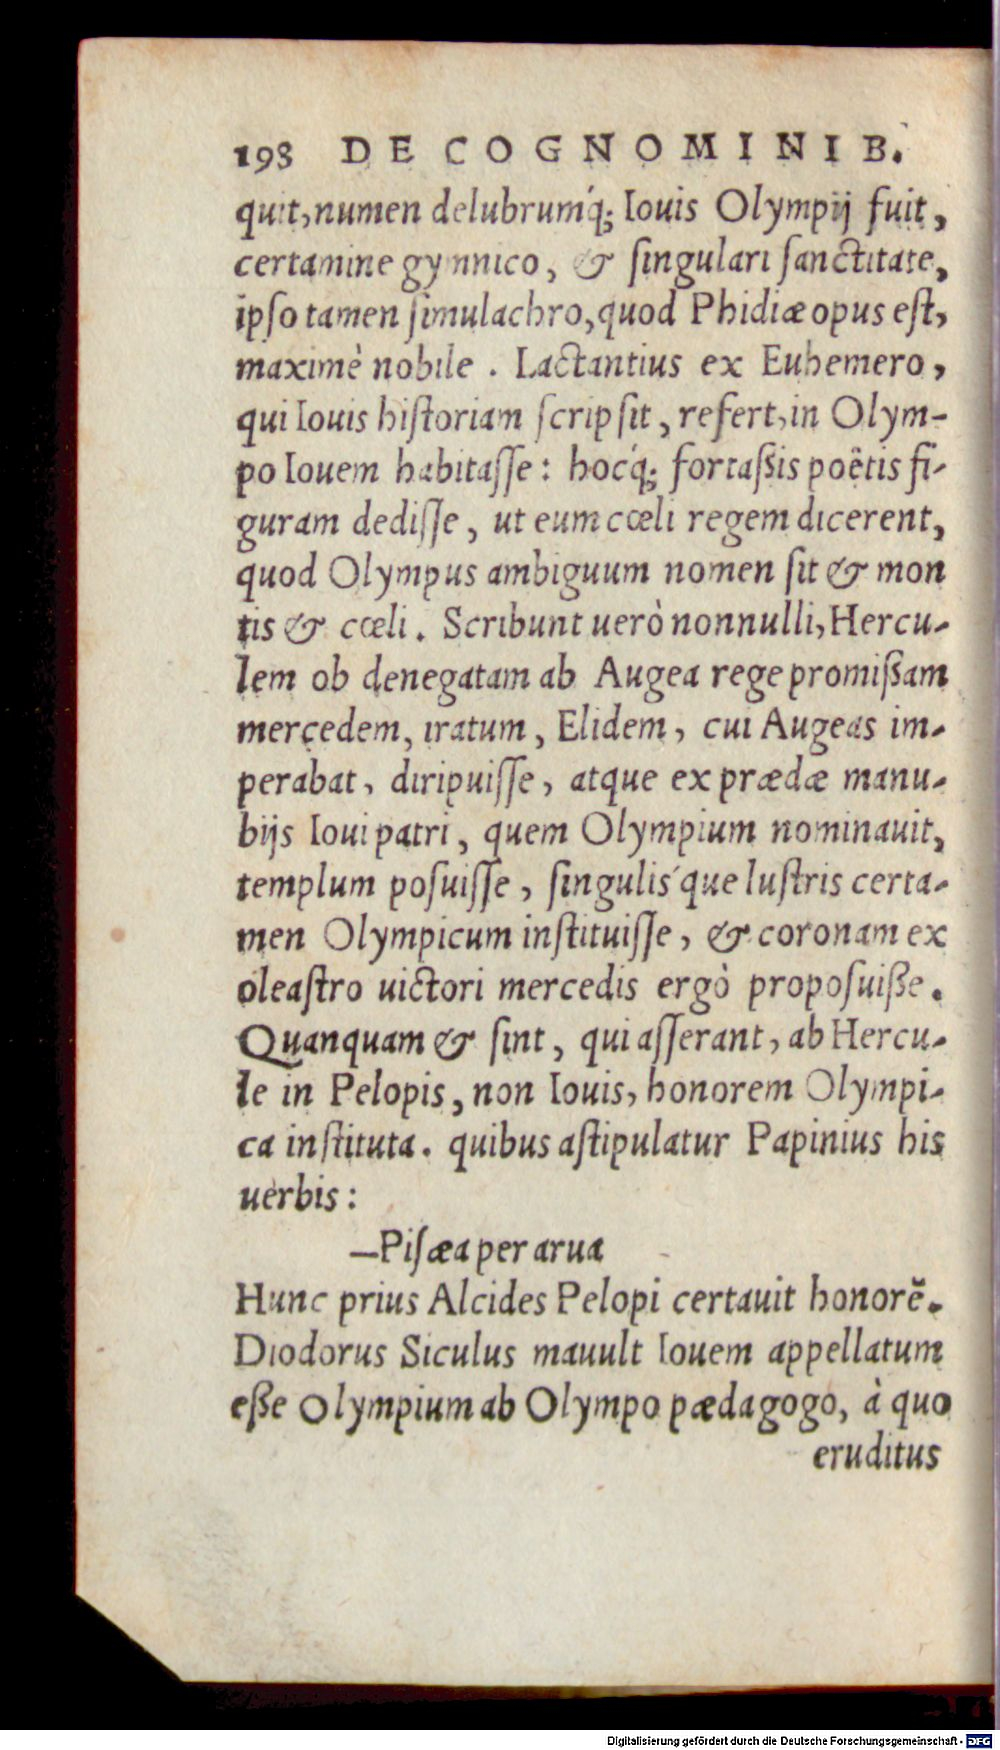 198 DE COGNOMINIB.
quit, numen delubrumq́; Iouis Olympij fuit,
certamine gymnico, & ſingulari ſanctitate,
ipſo tamen ſimulachro, quod Phidiæ opus eſt,
maximè nobile. Lactantius ex Euhemero,
qui Iouis hiſtoriam ſcripſit, refert, in Olym-
po Iouem habitaſſe: hocq́; fortaßis poëtis fi-
guram dediſſe, ut eum cœli regem dicerent,
quod Olympus ambiguum nomen ſit & mon
tis & cœli. Scribunt uerò nonnulli, Hercu-
lem ob denegatam ab Augea rege promißam
mercedem, iratum, Elidem, cui Augeas im-
perabat, diripuiſſe, atque ex prædæ manu-
bijs Ioui patri, quem Olympium nominauit,
templum poſuiſſe, ſingulis´que luſtris certa-
men Olympicum inſtituiſſe, & coronam ex
oleaſtro uictori mercedis ergò propoſuiße.
Quanquam & ſint, qui aſſerant, ab Hercu-
le in Pelopis, non Iouis, honorem Olympi-
ca inſtituta. quibus aſtipulatur Papinius his
uerbis:
—Piſæa per arua
Hunc prius Alcides Pelopi certauit honorē.
Diodorus Siculus mauult Iouem appellatum
eße Olympium ab Olympo pædagogo, à quo
eruditus
Digitalisierung gefördert durch die Deutsche Forschungsgemeinschaft - DFG